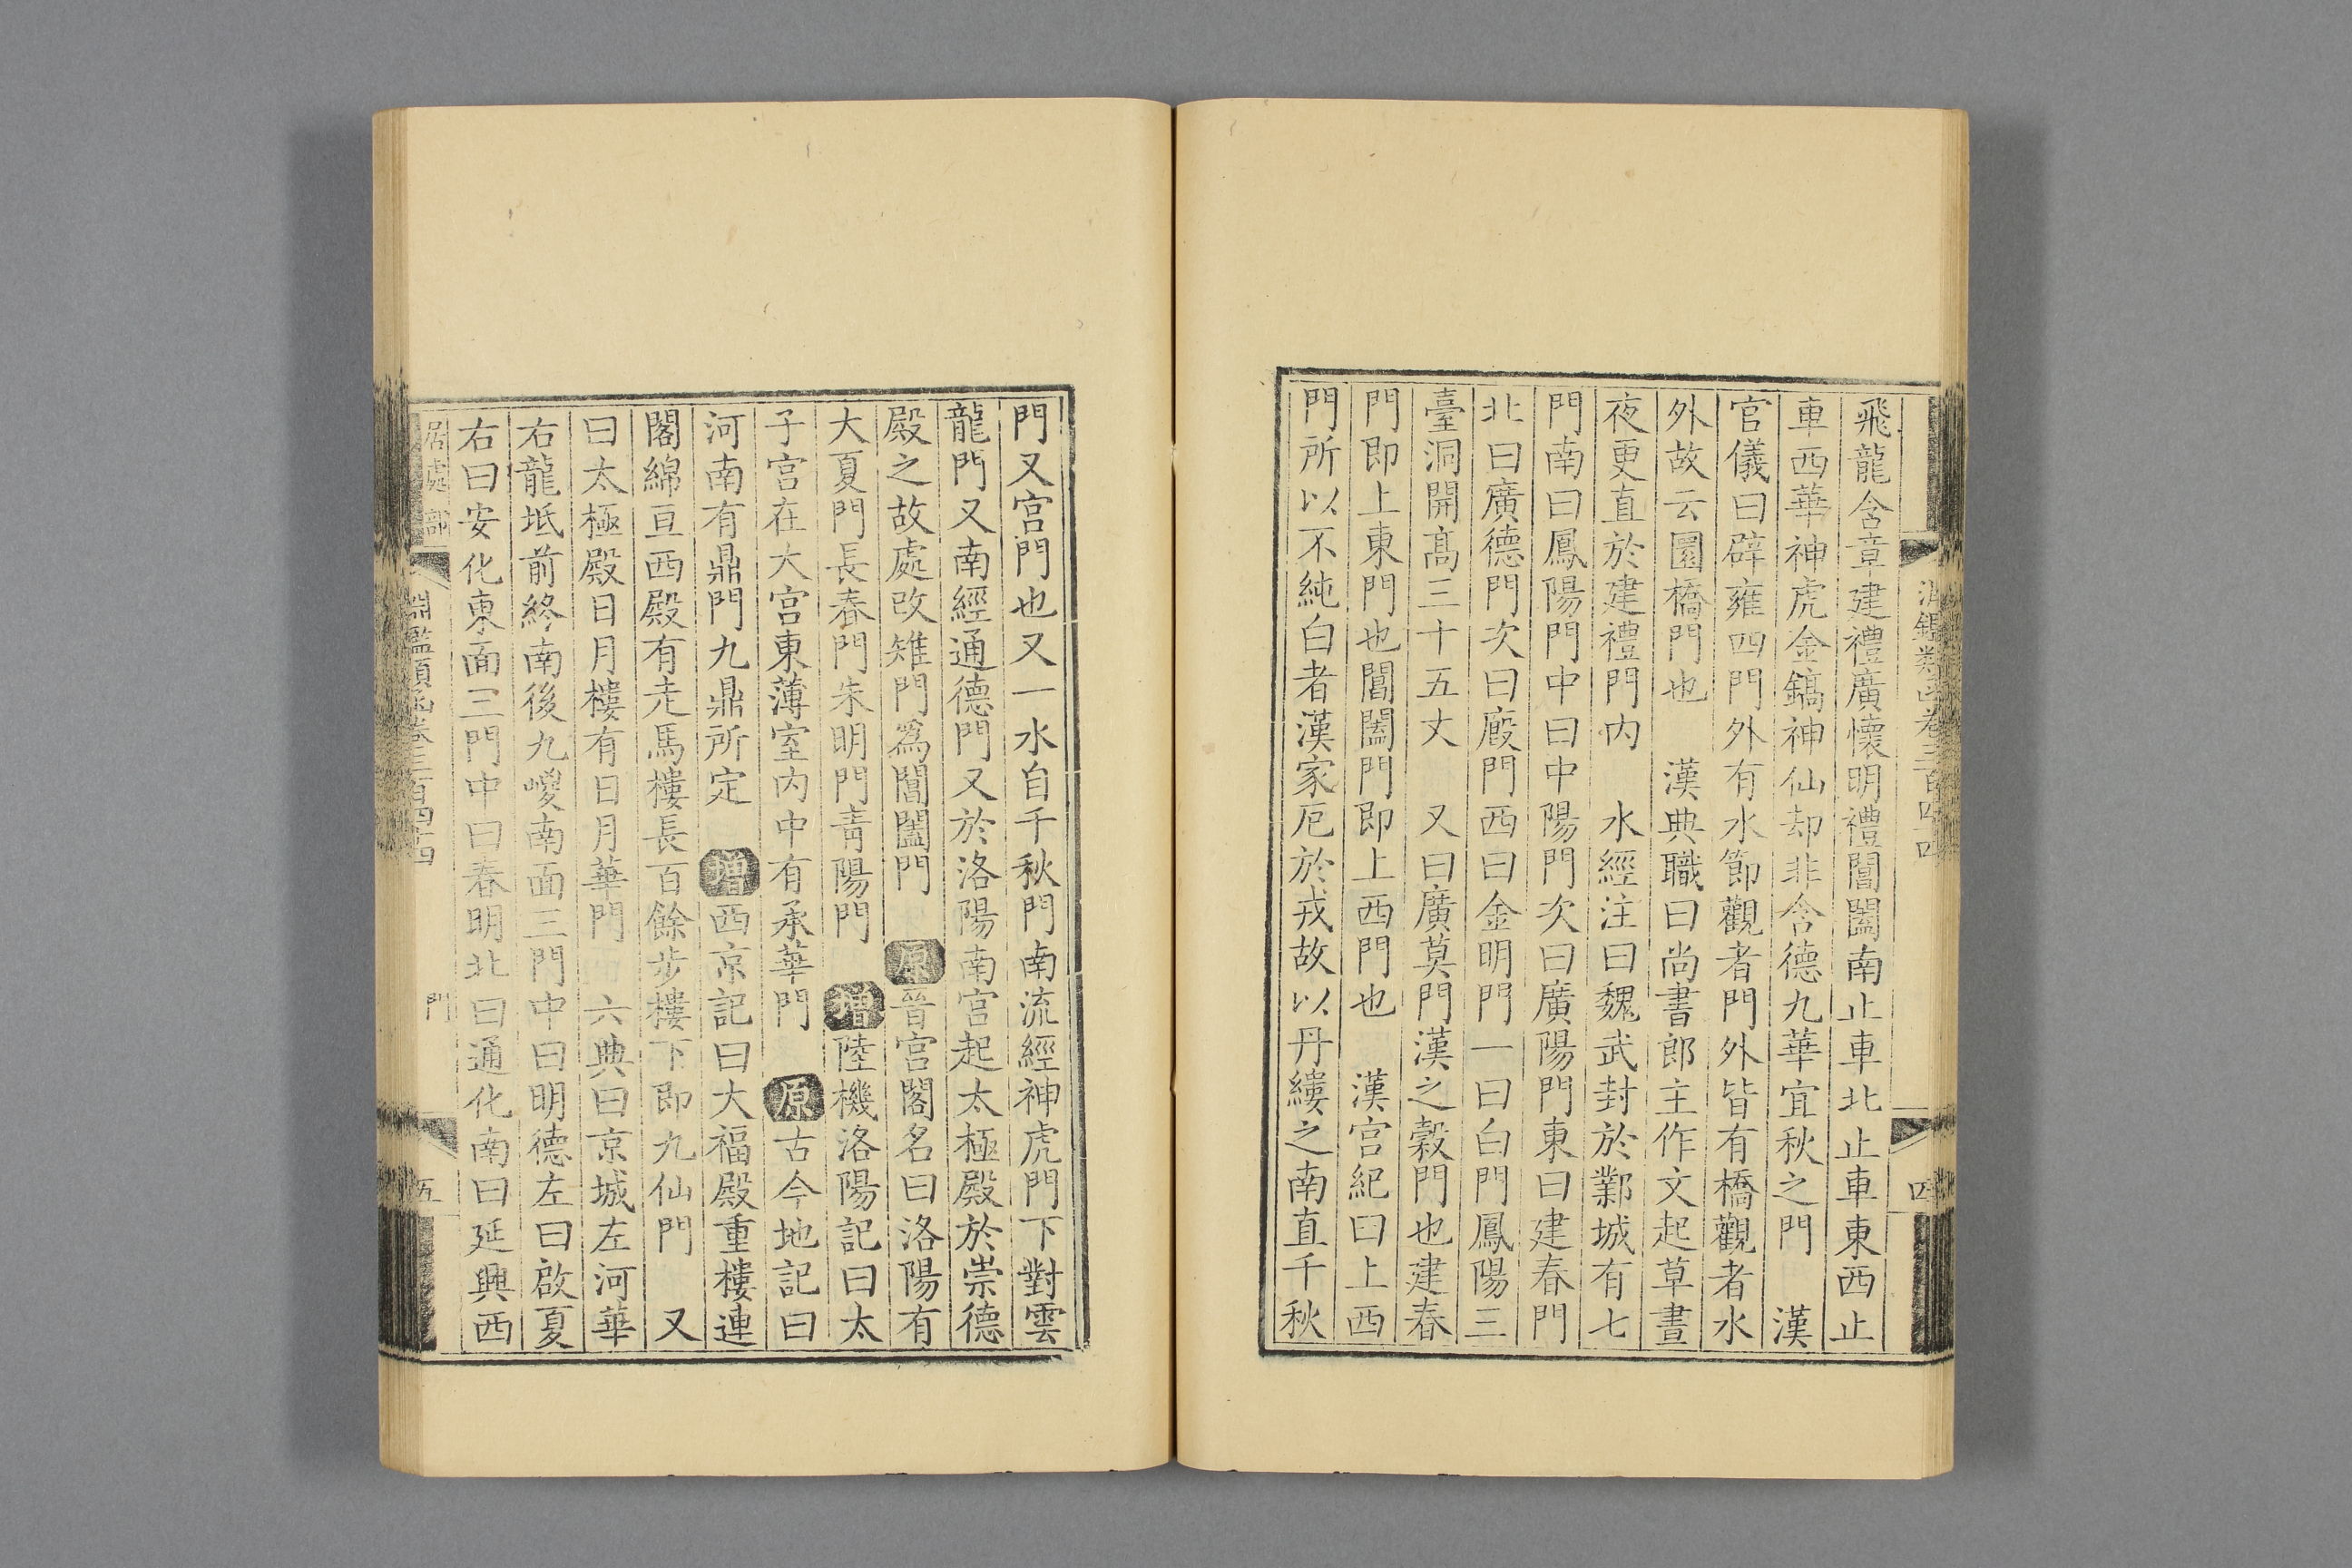 飛龍含章建禮廣懷明禮閶闔南止車北止車東西止
車西華神虎金鎬神仙却非含德九華宜秋之門　漢
官儀曰辟雍四門外有水節觀者門外皆有橋觀者水
外故云圜橋門也　漢典職曰尚書郎主作文起草晝
夜更直於建禮門内　水經注曰魏武封於鄴城有七
門南曰鳳陽門中曰中陽門次曰廣陽門東曰建春門
北曰廣德門次曰廄門西曰金明門一曰白門鳳陽三
臺洞開高三十五丈　又曰廣莫門漢之穀門也建春
門即上東門也閶闔門即上西門也　漢宮紀曰上西
門所以不純白者漢家厄於戎故以丹縷之南直千秋
淵鑑類函卷三百四十四　四
門又宮門也又一水自千秋門南流經神虎門下對雲
龍門又南經通德門又於洛陽南宮起太極殿於崇德
殿之故處改雉門為閶闔門　原晉宮閣名曰洛陽有
大夏門長春門朱明門青陽門　增陸機洛陽記曰太
子宮在大宮東薄室内中有承華門　原古今地記曰
河南有鼎門九鼎所定　增西京記曰大福殿重樓連
閣綿亘西殿有走馬樓長百餘步樓下即九仙門　又
曰太極殿日月樓有日月華門　六典曰京城左河華
右龍坻前終南後九嵕南面三門中曰明德左曰啟夏
右曰安化東面三門中曰春明北曰通化南曰延興西
居處部　淵鑑類函卷三百四十四　門　五